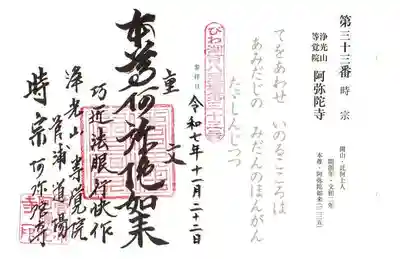 第三十三番 時宗
浄光山
等覚院 阿弥陀寺
開山・此阿上人
開創年・文和二年
本尊・阿弥陀如来(三三五)
てをあわせ いのるこころは
あみだじの みだんのほんがん
たゞしんじつ
びわ湖百八霊場第三十三番
参拝日 令和七年十一月二十二日
重文
本尊阿弥陀如来
巧匠法眼行快作
浄光山 等覚院
菅浦道場
時宗 阿弥陀寺